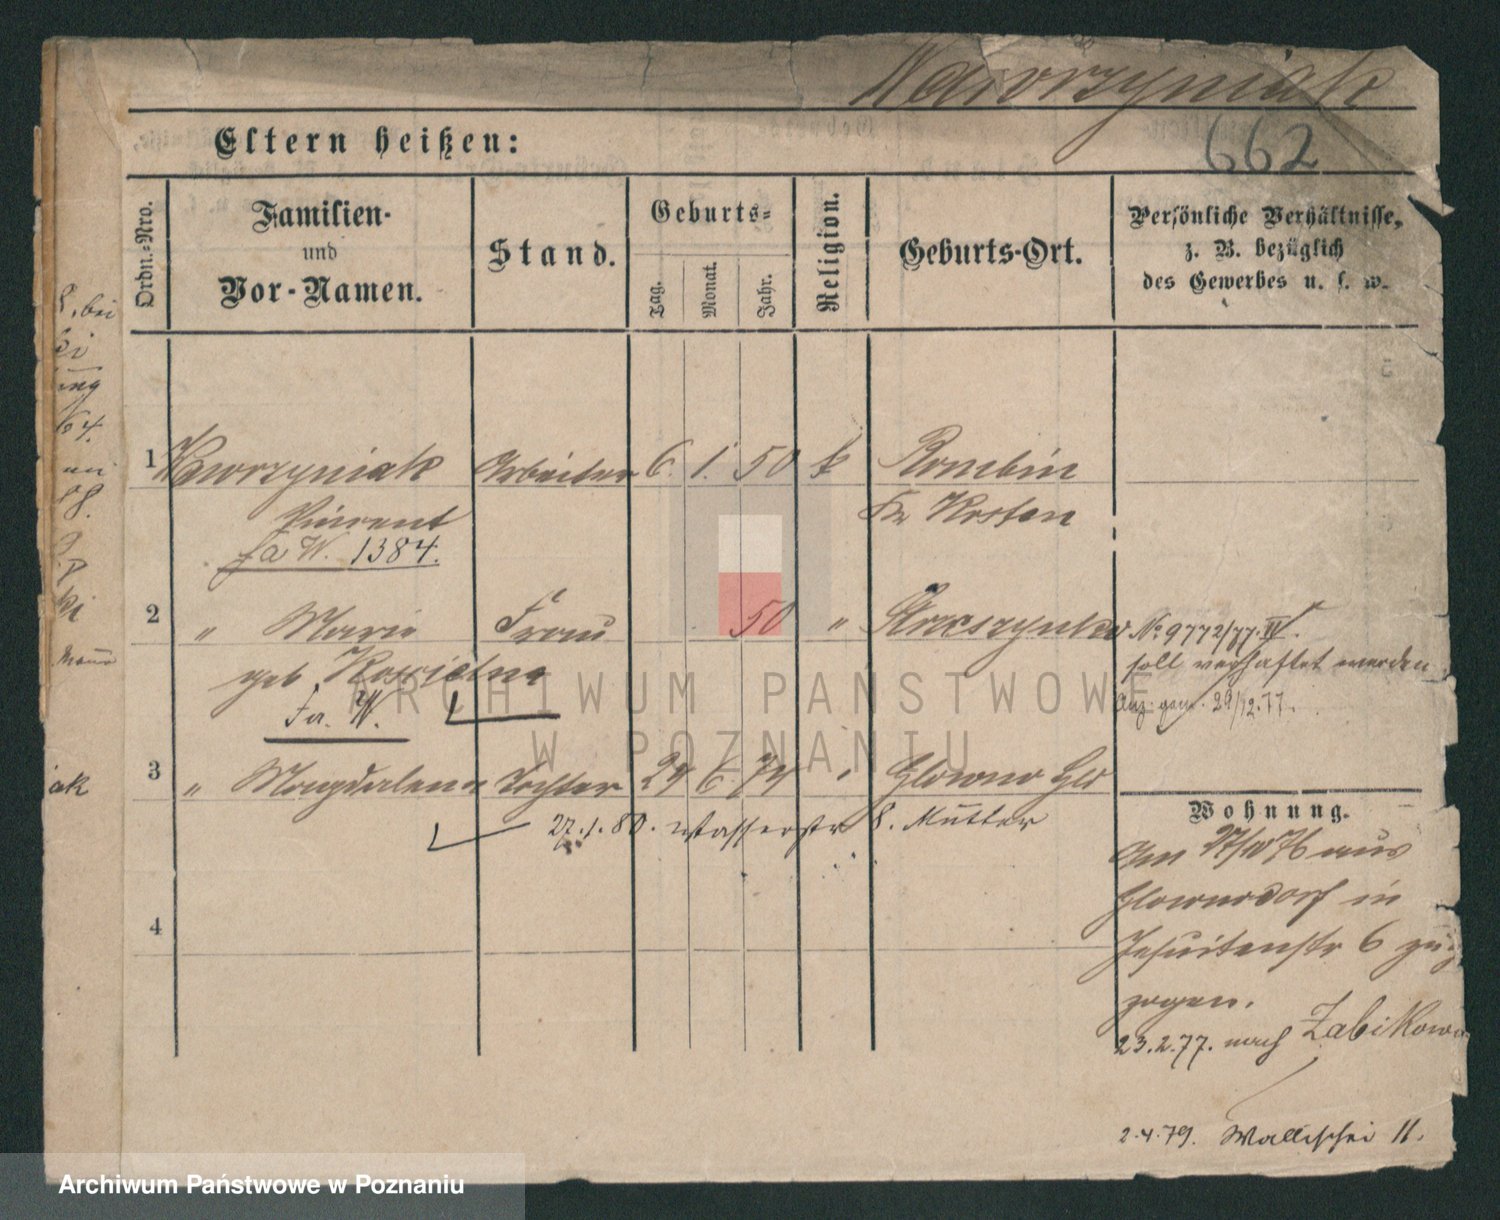 Wawrzyniak
662
Eltern heißen:
Ordn.-Nro.
Familien-
und
Vor-Namen.
Stand.
Geburts-
Tag.
Monat.
Jahr.
Religion.
Geburts-Ort.
Persönliche Verhältnisse,
z. B. bezüglich
des Gewerbes u. s. w.
1 Wawrzyniak Arbeiter 6. 1. 50 k Rombin
Vincent Kr Kosten
fa W. 1384.
2 " Marie Frau 50 "
No 9772/77. IV.
soll verhaftet werden
29/12.77.
geb
Fr. W.
3 " Magdalena Tochter 24 6 74 " Glowno
27.1.80. Wasserstr 8. Mutter
4
Wohnung.
Am 27/10 76 aus
Glownodorf in
Jesuitenstr 6 zuge
zogen.
23.2.77. nach Zabikowo
2.4.79. Wallischei 11.
bei
64.
ki
iak
ARCHIWUM PAŃSTWOWE
W POZNANIU
Archiwum Państwowe w Poznaniu